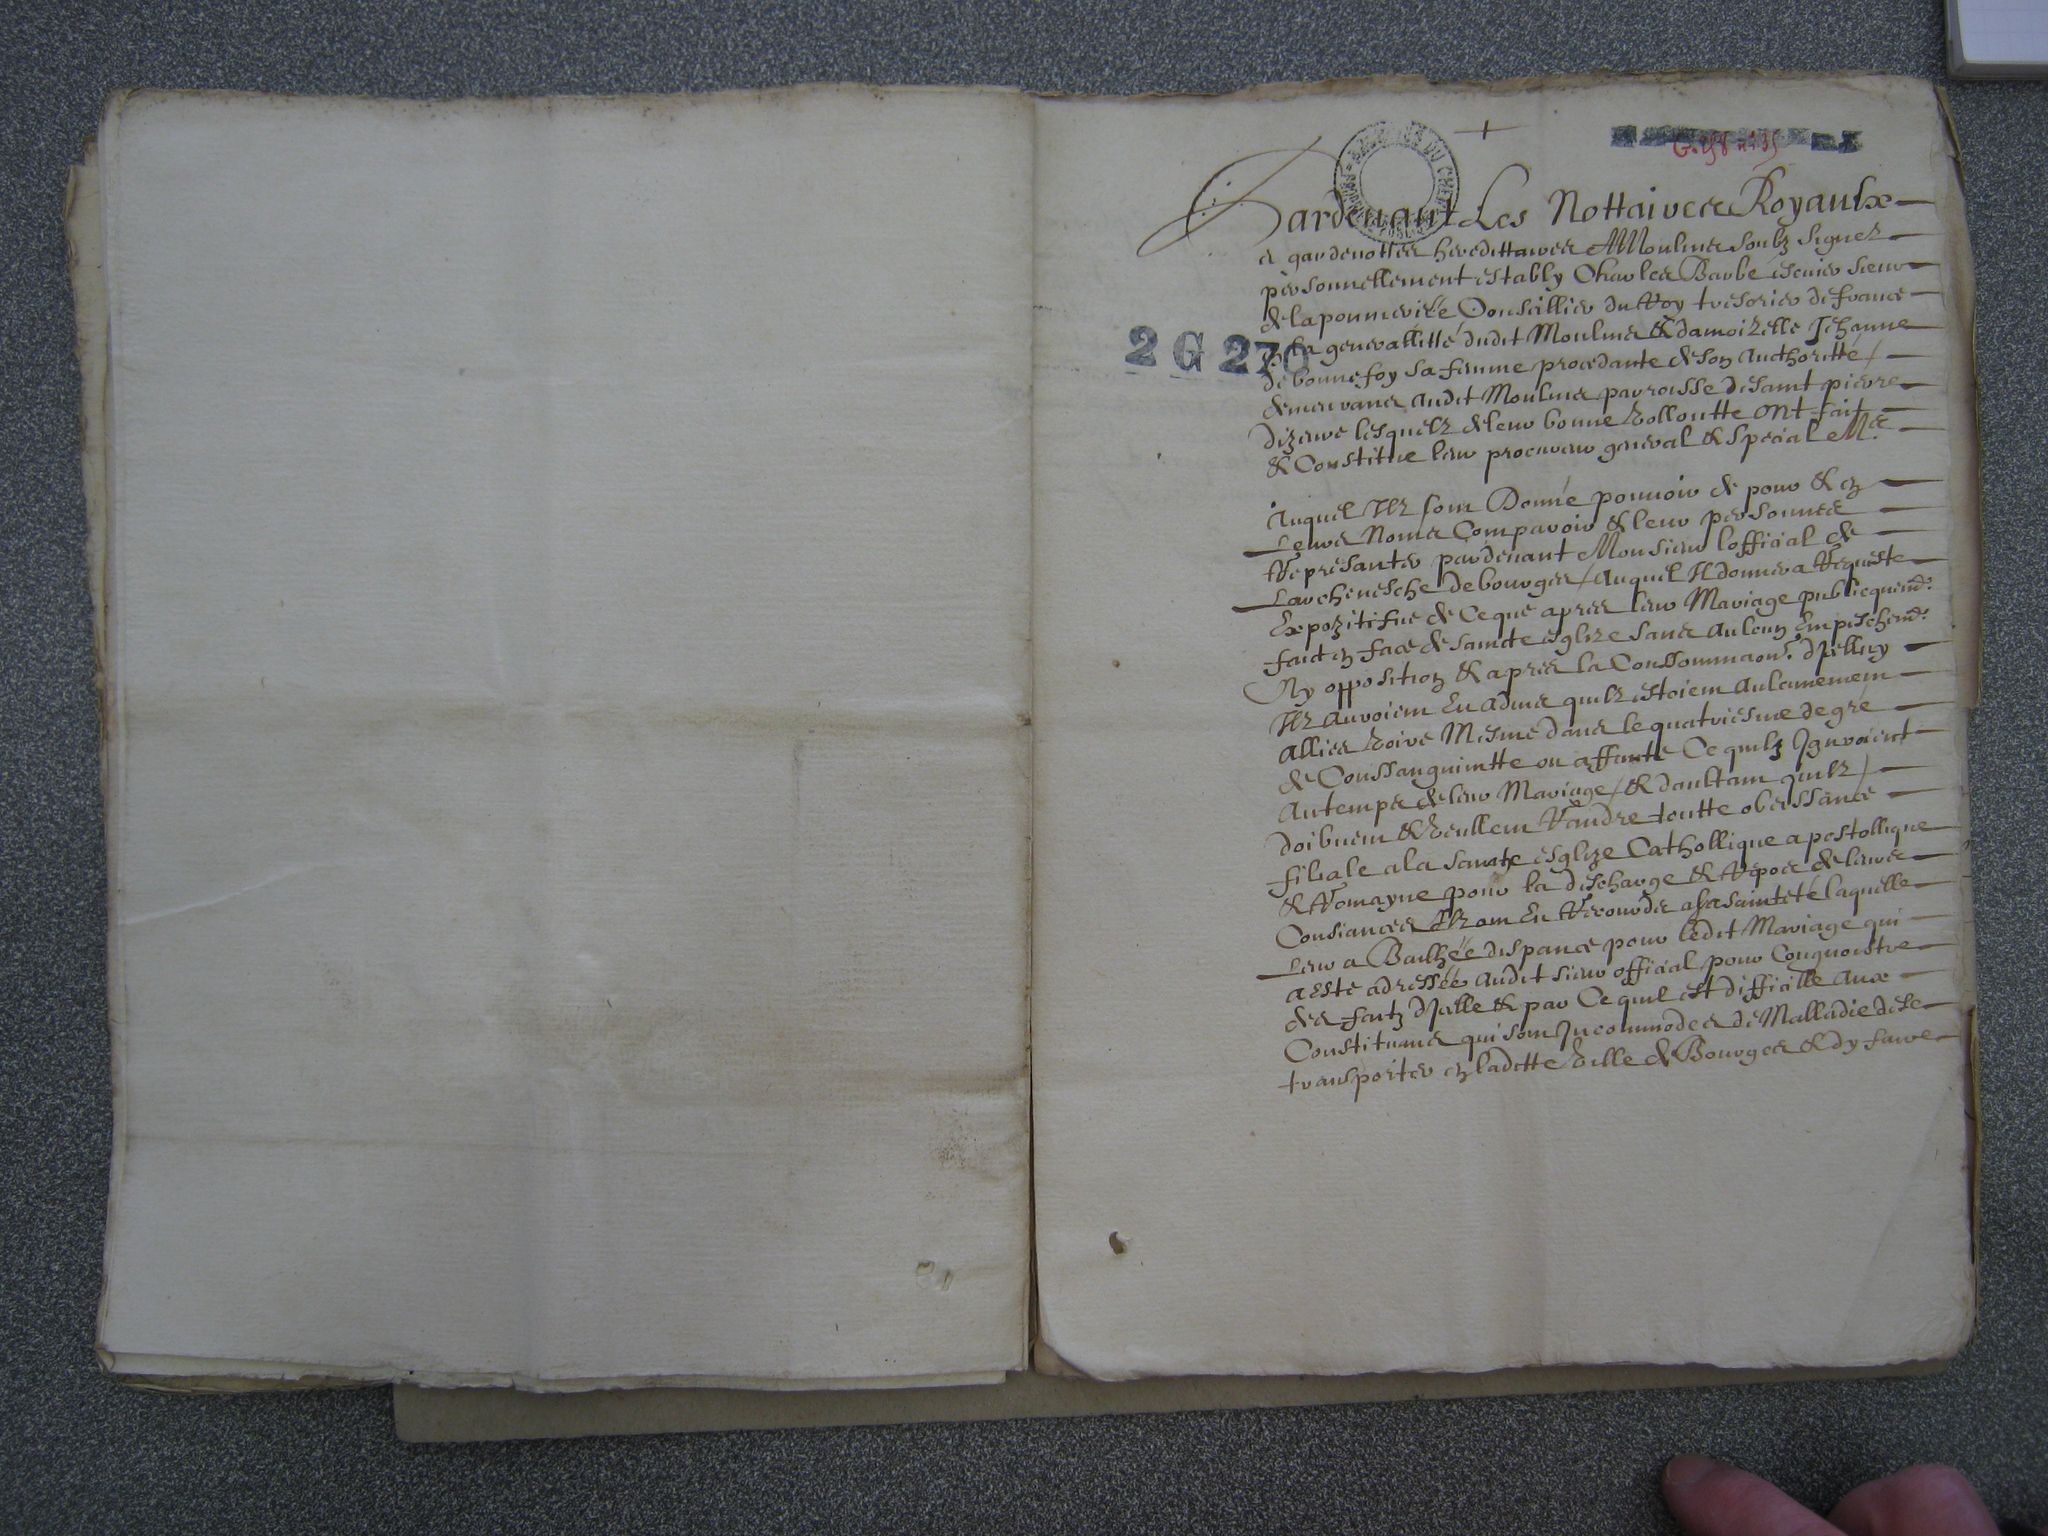 +
G. 258 n° 35
ARCHIVES DU CHER
2 G 270
Pardevant Les Nottaires Royaulx
& gardenottes hereditaires A Moulins soubz signez
personnellement estably Charles Barbe escuier sieur
de lapommeriée Conseillier du Roy tresorier de france
en la generallitté dudit Moulins & damoizelle Jehanne
de bonnefoy sa femme procedante de son Authoritté /
demeurans audit Moulins parroisse de saint pierre
lesquelz de leur bonne vollontte ont fait
& Constitue leur procureur general & special Me
Auquel Ilz font Donné pouvoir de pour & en
Leurs Noms Comparoir & leur personnes
Represanter pardevant Monsieur lofficial de
Larchevesche de bourges / Auquel Il donnera Requeste
Expozitifve de Ce que apres leur Mariage publicquemt
faict en face de saincte esglize sans Aulcun Empeschemt
Ny opposition & apres la Consommaon dJcelluy
Ilz auroient Eu advis quilz estoient Aulcunement
Allies voire Mesme dans le quatriesme degre
de Conssanguinitte ou affinite Ce quilz Jgnroient
Au temps de leur Mariage / & daultant quilz /
doibvent & veullent Randre toutte obeissance
filiale a la sainte esglize Catholliqne apostollique
& Romayne pour la descharge & Repos de leurs
Consiances Ilz ont Eu Recours a sa saintete laquelle
Leur a Bailhée dispance pour ledit Mariage qui
a este adressée Audit sieur official pour Congnoistre
des faitz dJcelle & par Ce quil est difficille Aux
Constituans qui sont Jncommodes de Malladie de se
transporter en ladite ville de Bourges & dy faire